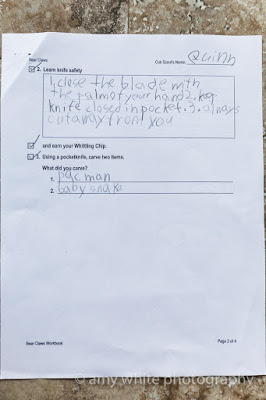 Bear Claws
Cub Scout's Name: Quinn
2. Learn knife safety
1, close the blade with
the palm of your hand 2. keep
knife closed in pocket. 3. always
cut away from you
and earn your Whittling Chip.
3. Using a pocketknife, carve two items.
What did you carve?
1. pac man
2. baby snake
Bear Claws Workbook
Page 2 of 4
© amy white photography